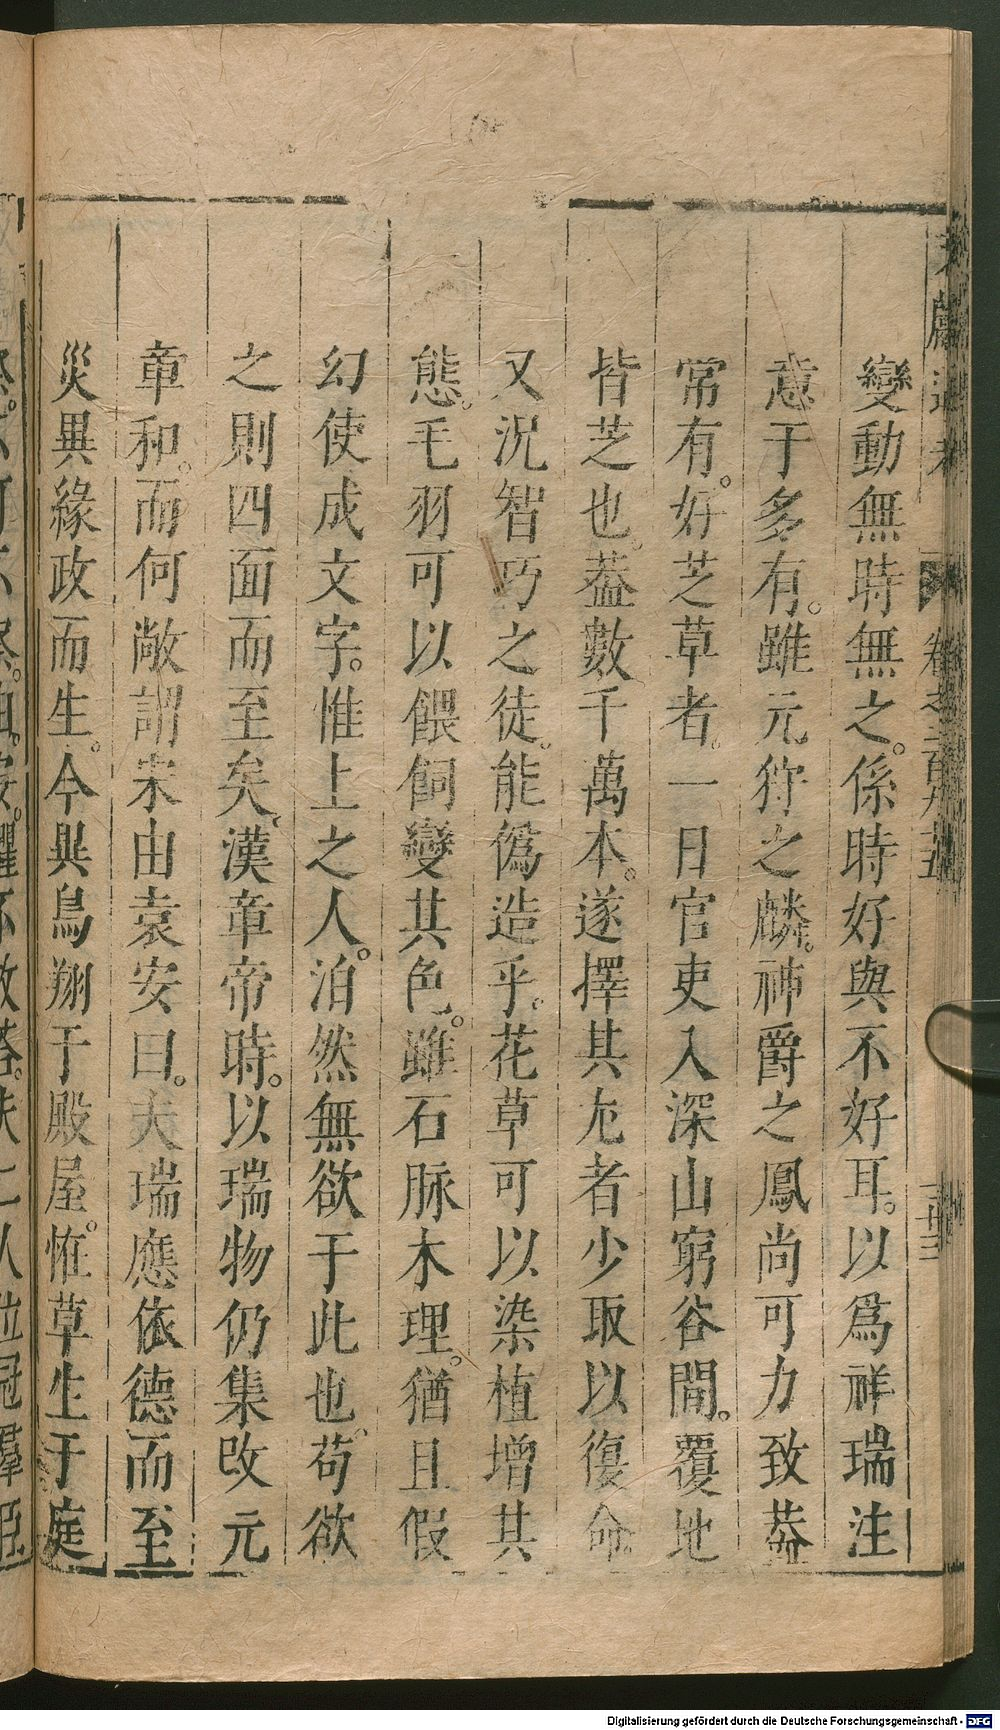 變動無時無之。係時好與不好耳。以爲祥瑞注
意于多有。雖元狩之麟。神爵之鳳尚可力致葢
常有。好芝草者。一日官吏入深山窮谷間。覆地
皆芝也。葢數千萬本。遂擇其尤者少取以復命
又況智巧之徒。能僞造乎。花草可以染植增其
態。毛羽可以餵飼變其色。雖石脉木理。猶且假
幻使成文字。惟上之人。泊然無欲于此也。苟欲
之則四面而至矣。漢章帝時。以瑞物仍集改元
章和。而何敞謂宋由袁安曰。夫瑞應依德而至
災異緣政而生。今異鳥翔于殿屋。恠草生于庭
Digitalisierung gefördert durch die Deutsche Forschungsgemeinschaft - DFG